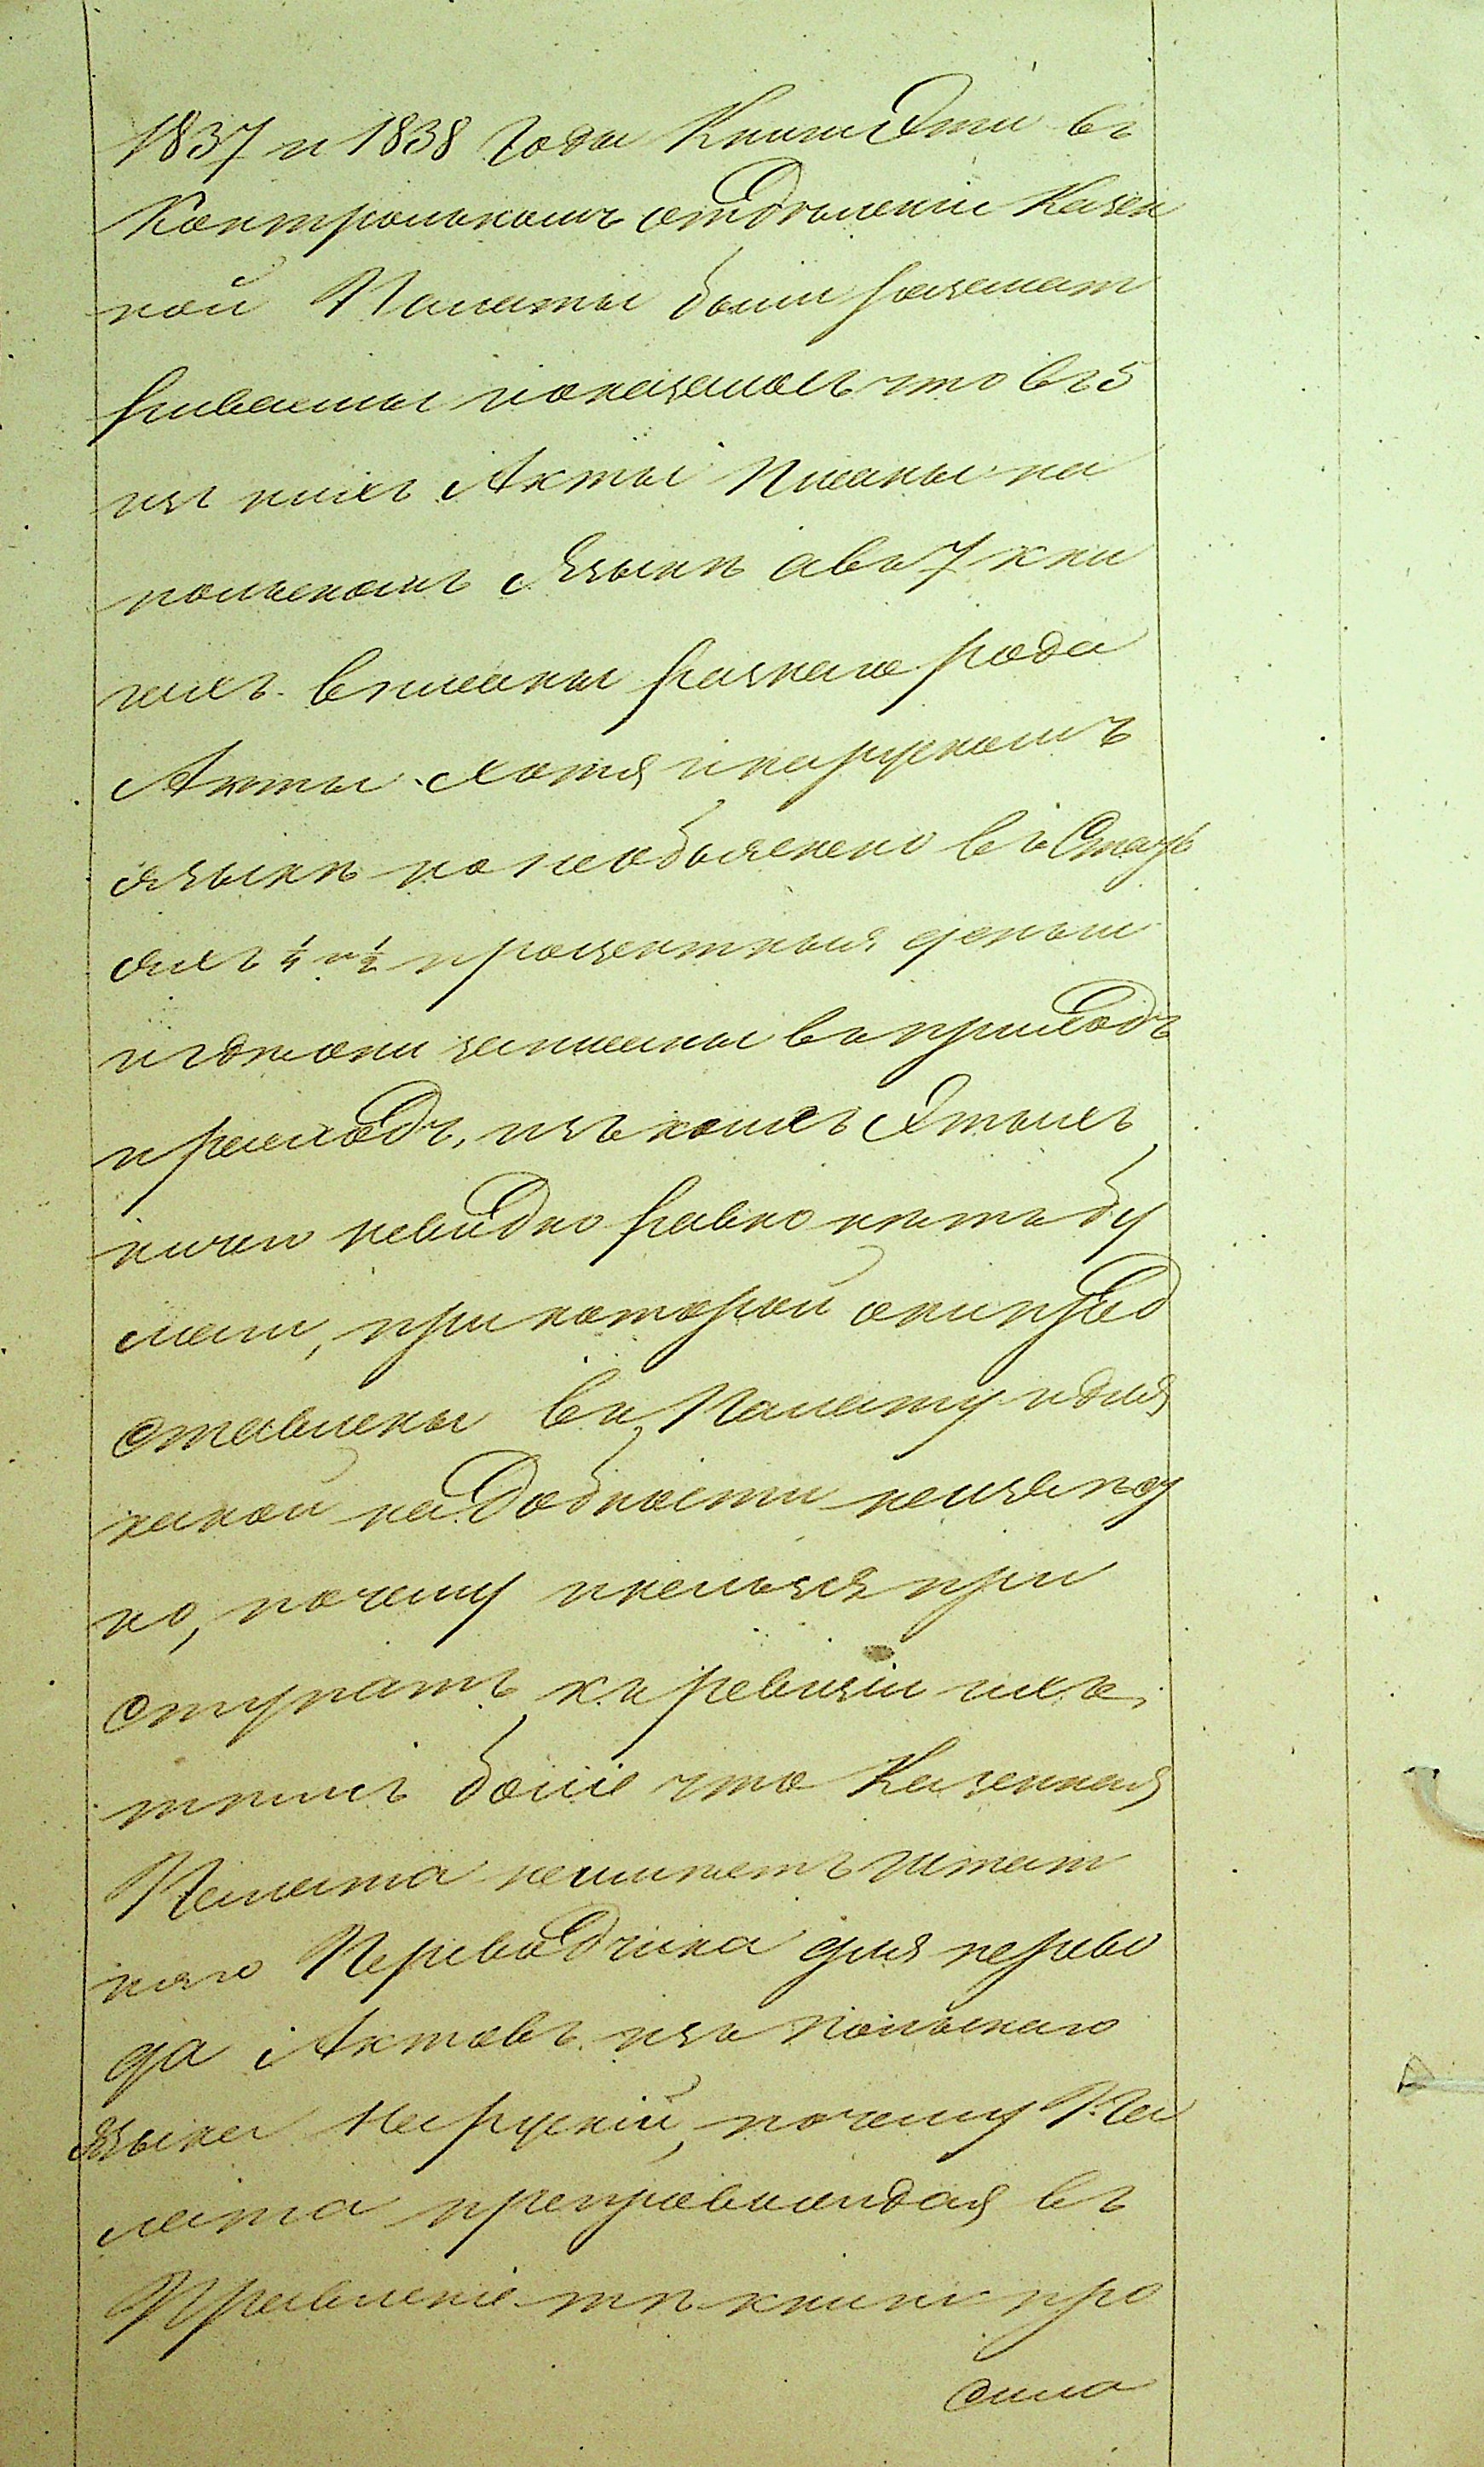 1837 и 1838 годы Книги Эти въ
Контрольномъ отдѣленіи Казен
ной Палаты были разсмат
риваемы и оказалось что въ 5
изъ нихъ Акты писаны на
польскомъ Языкѣ а въ 7 кни
гахъ вписаны разнаго рода
Акты хотя и нарускомъ
языкѣ но необъяснено въ Стать
яхъ ¼ и ½ процентныя деньги
и гдѣ они записаны въ приходъ
и расходъ, изъ коихъ Этихъ
ничего невидно равно нѣтъ бу
маги, при которой они пред
ставлены въ Палату и для
какой надобности неизвѣст
но, почему и нельзя при
ступать къ ревизіи ихъ,
тѣмъ боліе что Казенная
Палата неимѣетъ штат
наго Переводчика для перево
да Актовъ изъ польскаго
Языка на рускій, почему Па
лата препровождая въ
Правленіе тѣ книги про
сила